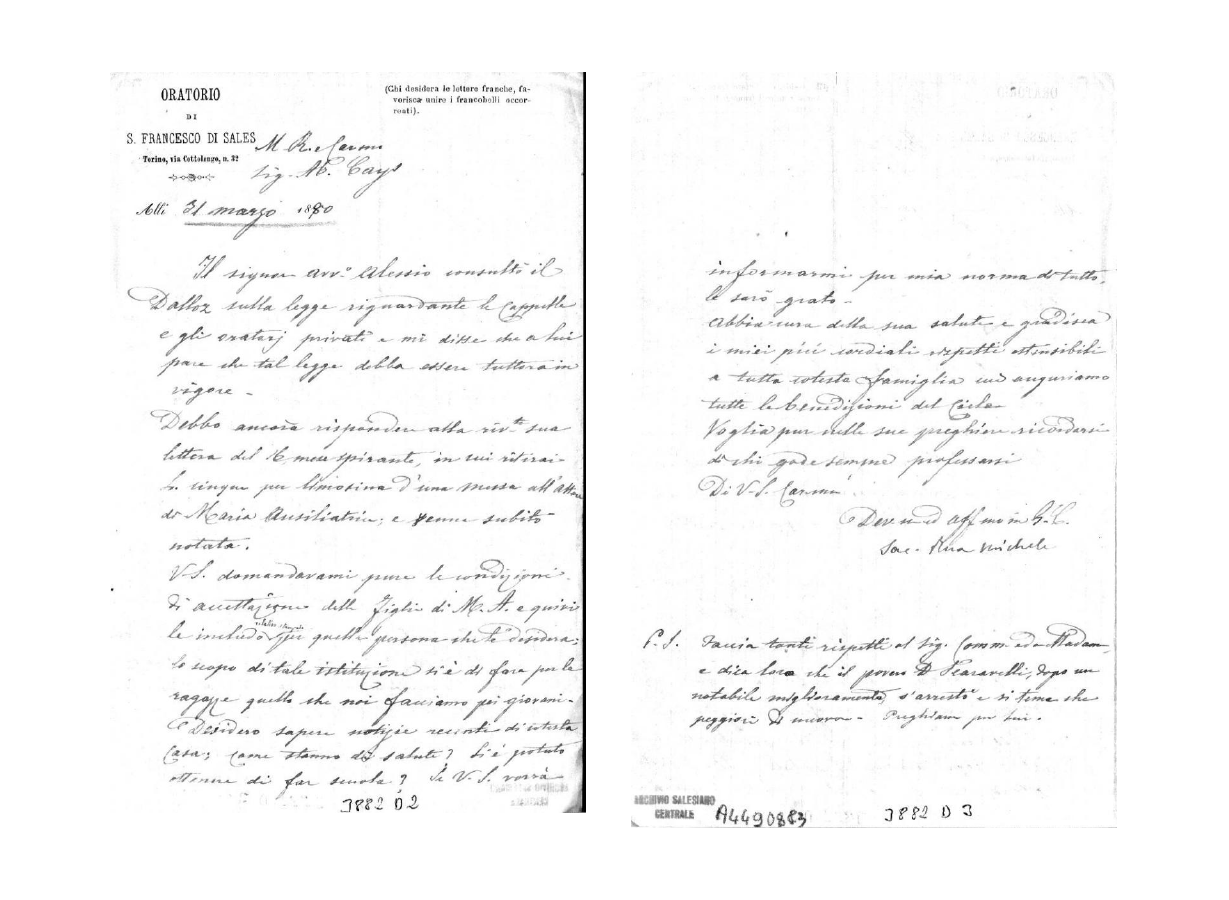 ORATORIO
DI
S. FRANCESCO DI SALES
Torino, via Cottolengo, n. 32
(Chi desidera le lettere franche, fa-
vorisca unire i francobolli occor-
renti).
M. R. e Carmo
Sig. Cays
Alli 31 marzo 1880
Il signor avv.o Alessio consultò il
Dalloz sulla legge riguardante le Cappelle
e gli oratorj privati e mi disse che a lui
pare che tal legge debba essere tuttora in
vigore -
Debbo ancora rispondere alla riv.ta sua
lettera del 16 mese spirante, in cui ritirai
L. cinque per limosina d'una messa all'altare
di Maria Ausiliatrice; e venne subito
notata.
V. S. domandavami pure le condizioni
di accettazione delle Figlie di M. A. e quivi
le includo per quelle persona che le desidera;
lo scopo di tale istituzione si è di fare per le
ragazze quello che noi facciamo pei giovani -
Desidero sapere notizie recenti di cotesta
Casa; come stanno di salute? Si è potuto
ottenere di far scuola? Se V. S. vorrà
3882 D 2
informarmi per mia norma di tutto,
le sarò grato -
Abbia cura della sua salute e gradisca
i miei più cordiali rispetti estensibili
a tutta cotesta famiglia cui auguriamo
tutte le benedizioni del Cielo
Voglia pur nelle sue preghiere ricordarsi
di chi gode sempre professarsi
Di V. S. Carma
Dev.mo ed aff mo in G. C.
Sac. Rua Michele
P. S. Faccia tanti rispetti al Sig. Comm. ed a Madam
e dica loro che il povero D. Scaravelli, dopo un
notabile miglioramento s'arrestò e si teme che
peggiori di nuovo - Preghiamo per lui.
ARCHIVIO SALESIANO
CENTRALE
A4490883
3882 D 3